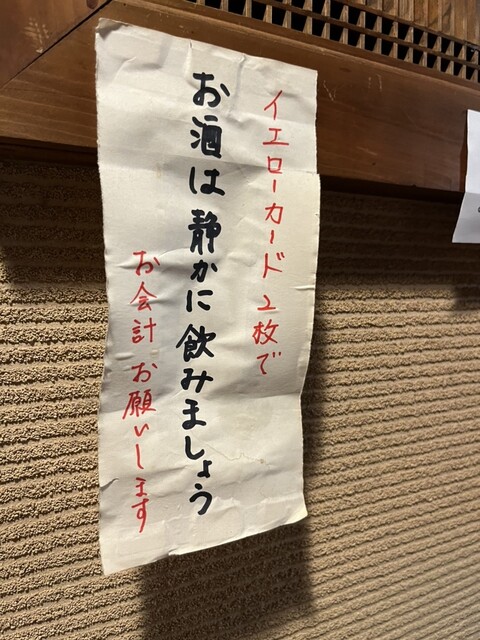 イエローカード2枚で
お酒は静かに飲みましょう
お会計お願いします